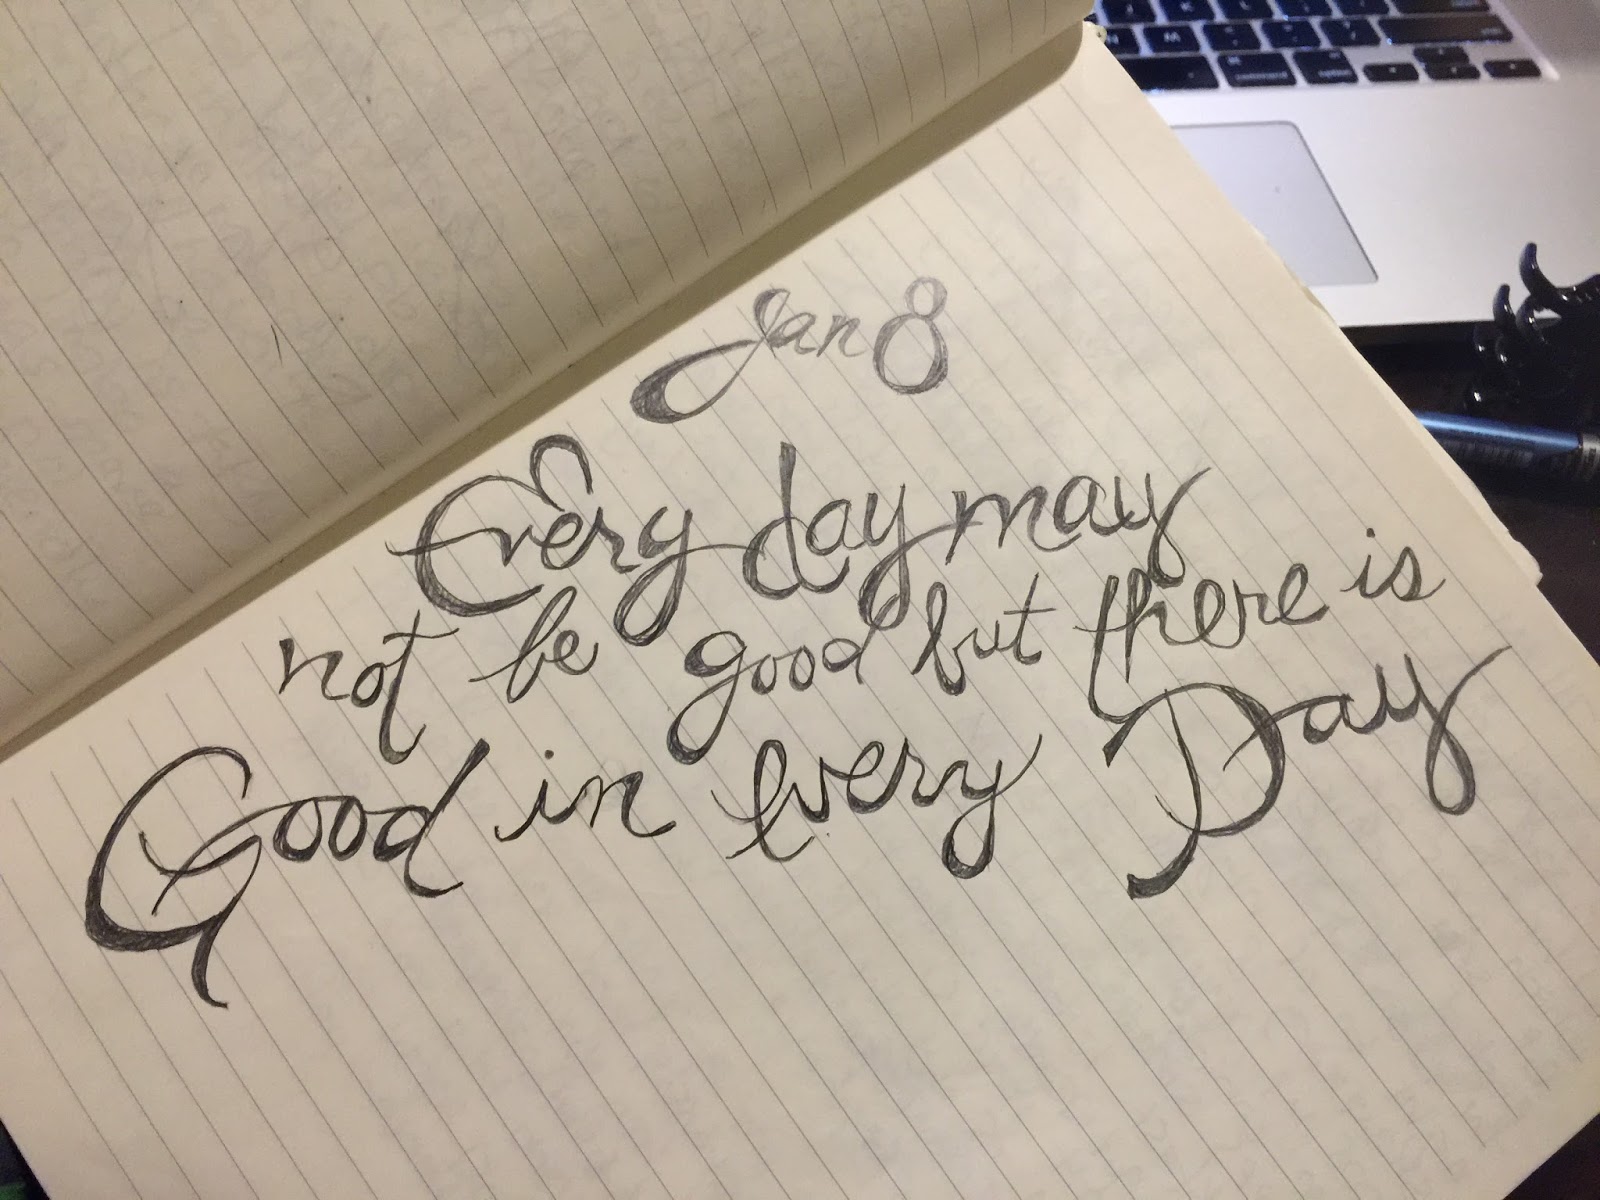 Jan 8
Every day may
not be good but there is
Good in Every Day
command
option